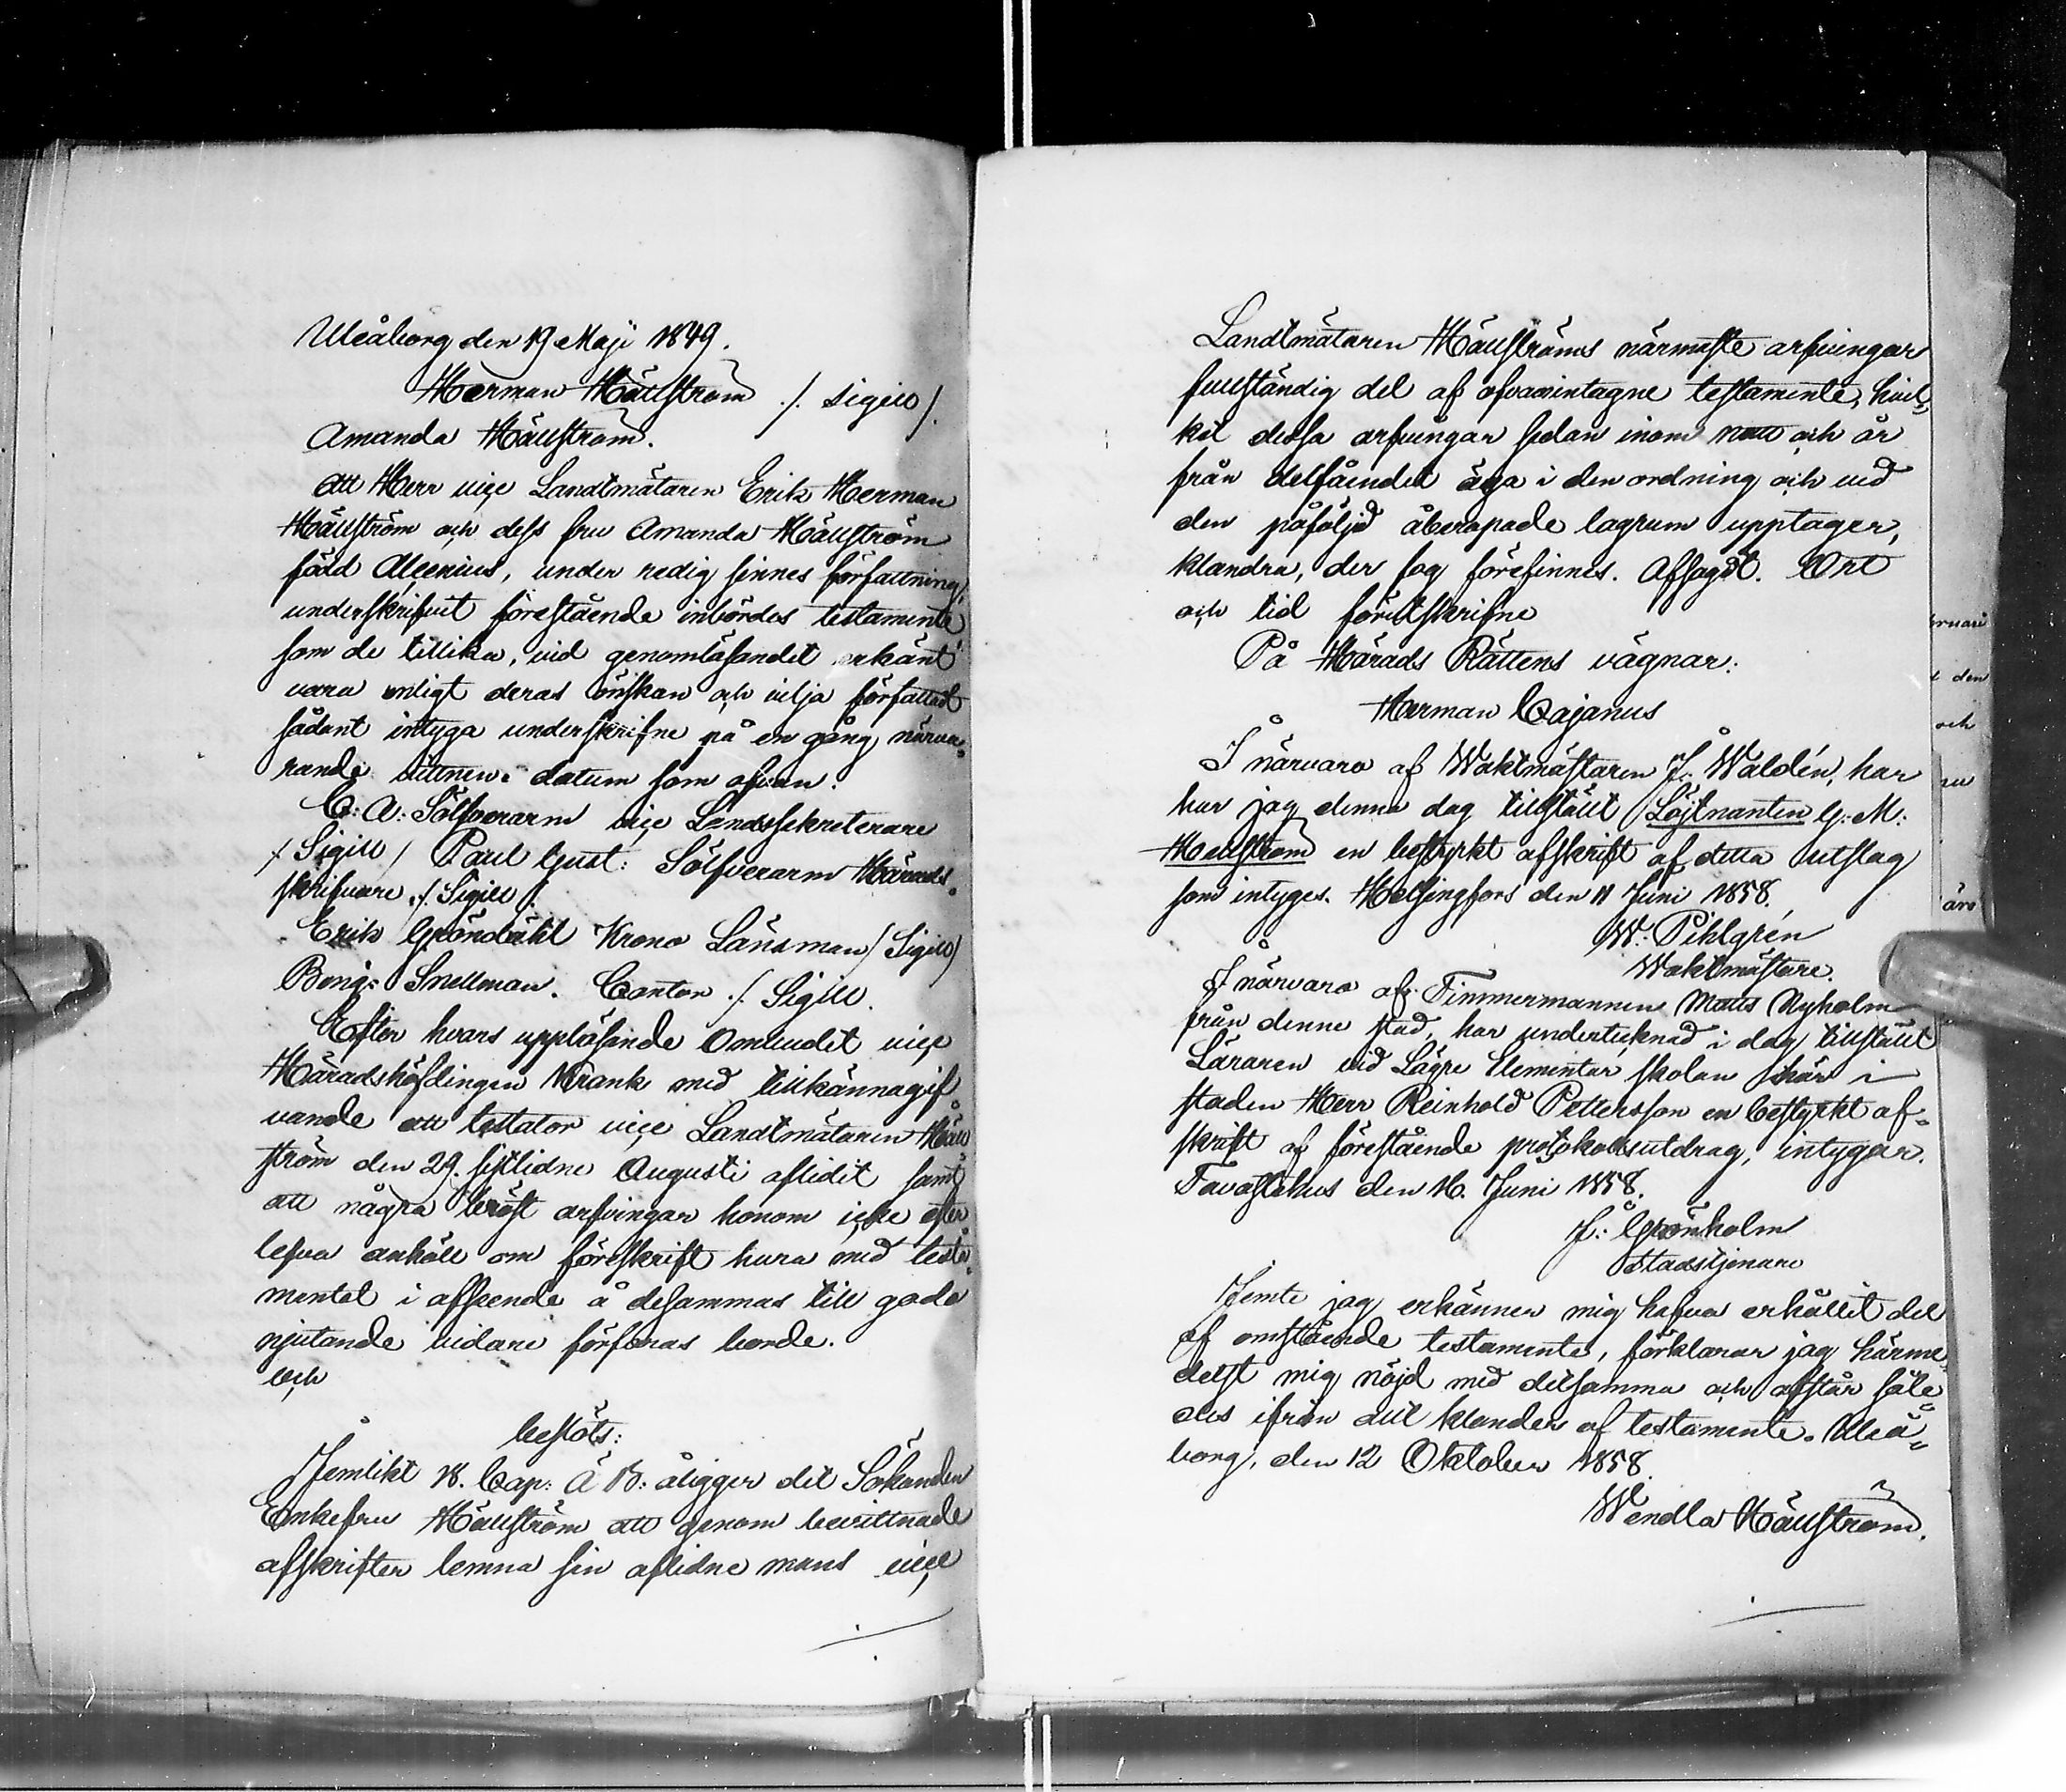 Uleåborg den 19 Maji 1849.
Herman Hällström /. sigill /.
Amanda Hällström.
Att Herr vice Landtmätaren Erik Herman
Hällström och dess fru Amanda Hällström
född Alcenius, under redig sinnes författning,
underskrifvit förestående inbördes testamente
som de tillika, vid genomläsandet erkänt
vara enligt deras önskan och vilja författadt
sådant intyga underskrifne på en gång närva-
rande vittnen: datum som ofvan.
C: A: Sölfverarm vice Landssekreterare
/ Sigill / Paul Gust: Sölfverarm Härads-
skrifvare ./. Sigill /.
Erik Gröndahl Krono Länsman / Sigill /
Beng: Snellman. Cantor ./. Sigill.
Efter hvars uppläsande Ombudet vice
Häradshöfdingen Krank med tillkännagif
vande att testator vice Landtmätaren Häll
ström den 29. sistlidne Augusti aflidit samt
att några bröst arfvingar honom icke efter
lefva anhöll om föreskrift huru med testa-
mentet i afseende å desammas till godo
njutande vidare förfaras borde.
och
beslöts:
Jemlikt 18. Cap: Ä B: åligger det Sökanden
Enkefru Hällström att genom bevittnade
afskrifter lemna sin aflidne mans vice
Landtmätaren Hällströms närmaste arfvingar
fullständig del af ofvanintagne testamente, hvil-
ket dessa arfvingar sedan inom natt och år
från delfåendet äga i den ordning och vid
den påföljd åberopade lagrum upptager,
klandra, der fog förefinnes. Afsagdt. Ort
och tid förutskrifne
På Härads Rättens vägnar:
Herman Cajanus
I närvaro af Waktmästaren J. Waldén, har
har jag denna dag tillställt Löjtnanten G: M:
Hellström en bestyrkt afskrift af detta utslag
som intyges. Helsingfors den 11 Juni 1858.
W: Pihlgrén
Waktmästare.
I närvaro af Timmermannen Matts Nyholm
från denne stad, har undertecknad i dag tillställt
Läraren vid Lägre Elementar skolan här i
staden Herr Reinhold Pettersson en bestyrkt af-
skrift af förestående protokollsutdrag, intygar.
Tavastehus den 16. Juni 1858.
J: Grönholm
Stadstjenare
Jemte jag erkänner mig hafva erhållit del
af omstående testamente, förklarar jag härme-
delst mig nöjd med detsamma och afstår såle-
des ifrån allt klander af testamente. Uleå-
borg, den 12 Oktober 1858.
Wendla Hällström.
bruari
t den
och
ru
äro